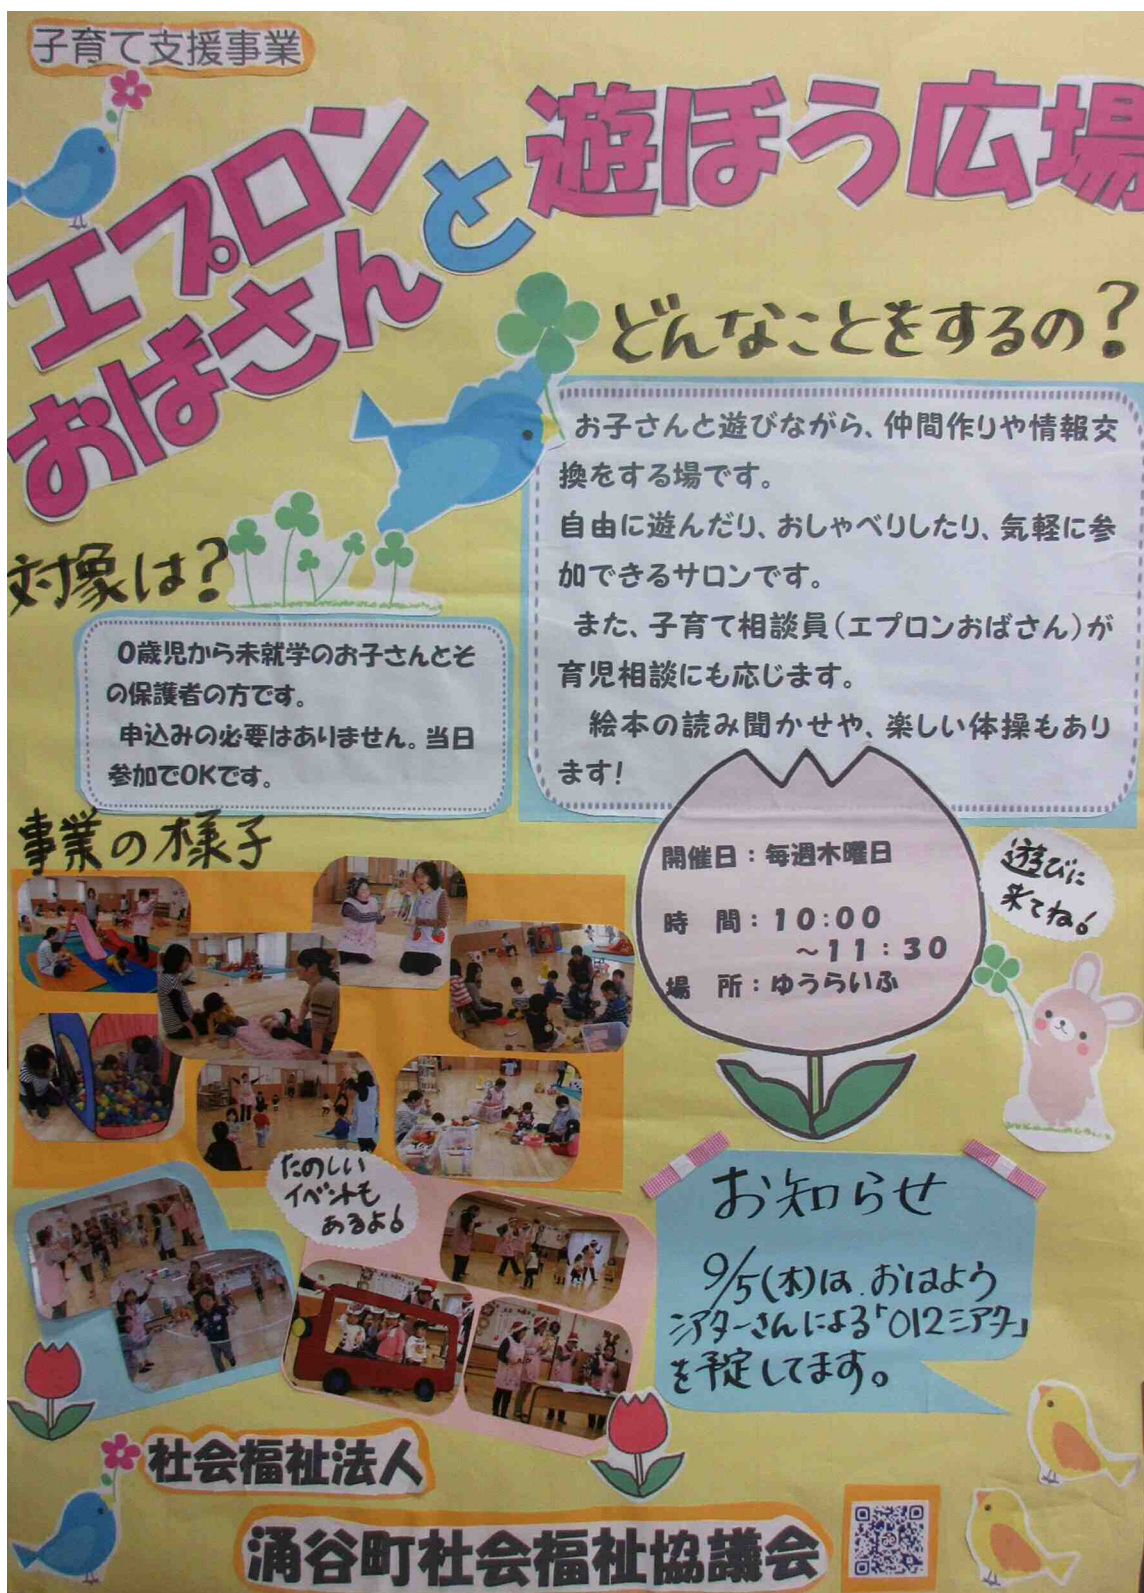 子育て支援事業
エプロン
おばさん
と
遊ぼう広場
どんなことをするの?
お子さんと遊びながら、仲間作りや情報交
換をする場です。
自由に遊んだり、おしゃべりしたり、気軽に参
加できるサロンです。
また、子育て相談員(エプロンおばさん)が
育児相談にも応じます。
絵本の読み聞かせや、楽しい体操もあり
ます!
対象は?
0歳児から未就学のお子さんとそ
の保護者の方です。
申込みの必要はありません。当日
参加でOKです。
事業の様子
開催日:毎週木曜日
時 間:10:00
~11:30
場 所:ゆうらいふ
遊びに
来てね!
たのしい
イベントも
あるよ!
お知らせ
9/5(木)は、おはよう
シアターさんによる「012シアター」
を予定してます。
社会福祉法人
涌谷町社会福祉協議会